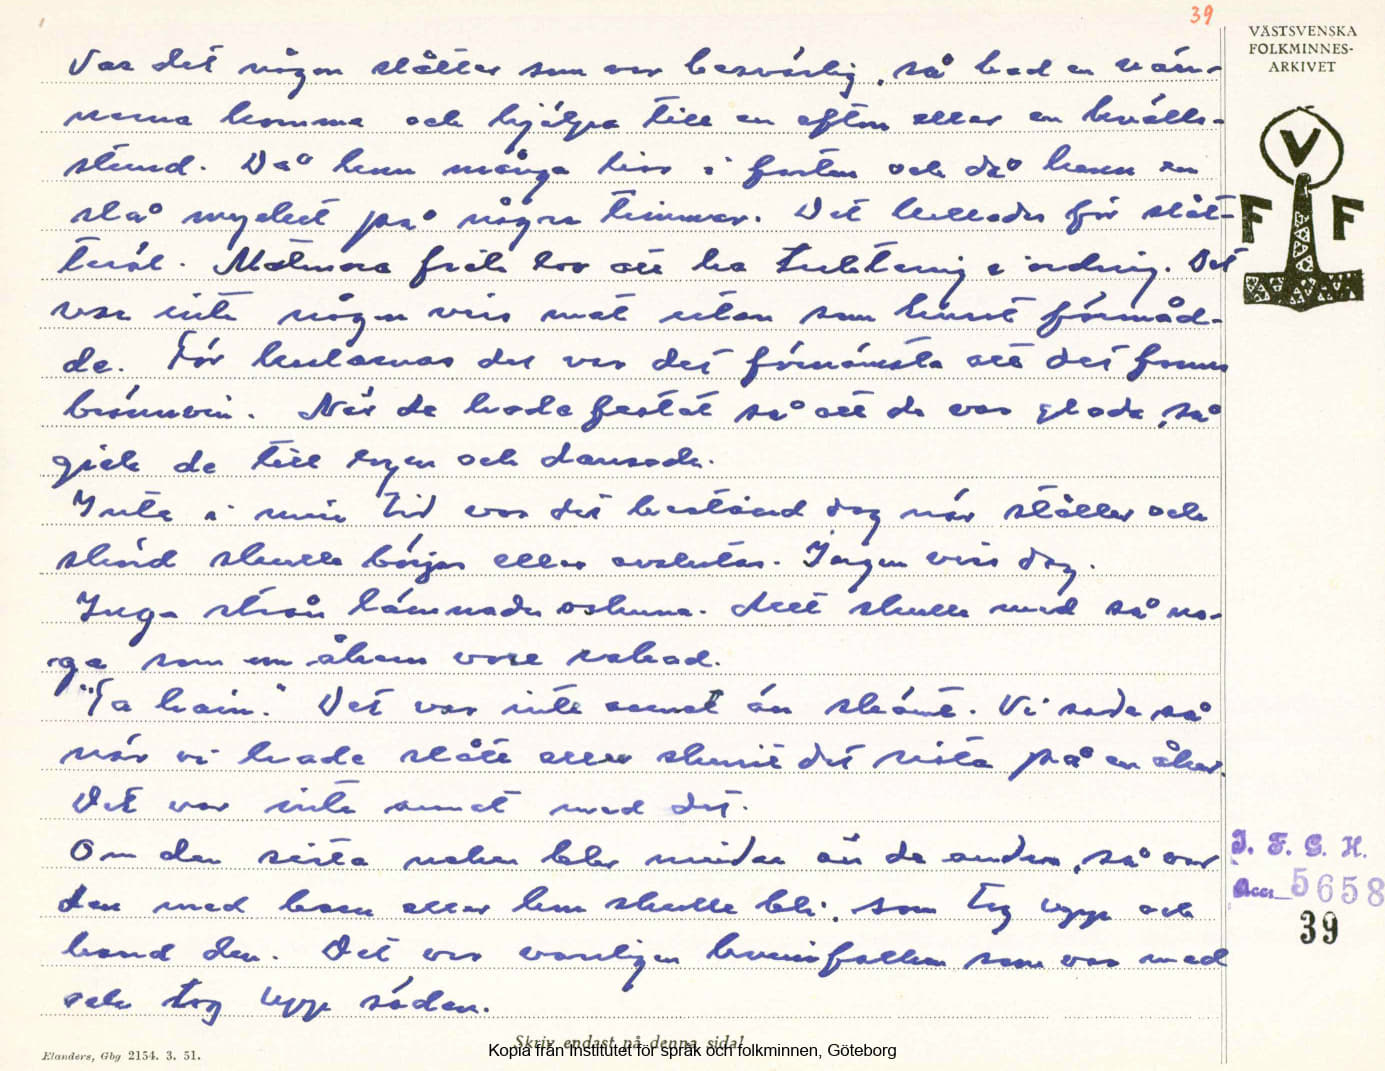 39
VÄSTSVENSKA
FOLKMINNES-
ARKIVET
V
F F
Var det någon slåtter som var besvärlig, så bad en vän-
nerna komma och hjälpa till en afton eller en kvälls-
stund. Då kom många liar i farten och då hann en
slå mycket på några timmar. Det kallades för slåt-
teröl. Matmora fick lov att ha traktering i ordning. Det
var inte någon viss mat utan som huset förmåd-
de. För karlarnas del var det förnämsta att det fanns
brännvin. När de hade festat så att de var glada, så
gick de till logen och dansade.
Inte i min tid var det bestämd dag när slåtter och
skörd skulle börjas eller avslutas. Ingen viss dag.
Inga strån lämnades oskurna. Allt skulle med så no-
ga som om åkern vore rakad.
"Ta harin." Det var inte annat än skämt. Vi sade så
när vi hade slått eller skurit det sista på en åker.
Det var inte annat med det.
Om den sista neken blev mindre än de andra, så var
den med barn eller hon skulle bli, som tog upp och
band den. Det var vanligen kvinnfolken som var med
och tog upp säden.
I. F. G. H.
Acc. 5658
39
Skriv endast på denna sida!
Kopia från Institutet för språk och folkminnen, Göteborg
Elanders, Gbg 2154. 3. 51.